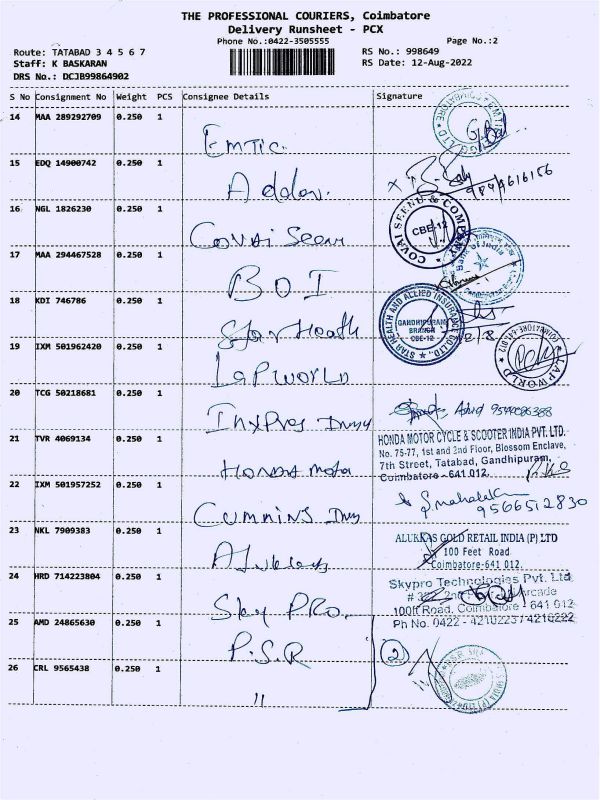 THE PROFESSIONAL COURIERS, Coimbatore
Delivery Runsheet - PCX
Phone No.:0422-3505555
Page No.:2
Route: TATABAD 3 4 5 6 7
RS No.: 998649
Staff: K BASKARAN
RS Date: 12-Aug-2022
DRS No.: DCJB99864902
S No Consignment No Weight PCS Consignee Details Signature
14 MAA 289292709 0.250 1
Emtic.
15 EDQ 14900742 0.250 1
Addon.
16 NGL 1826230 0.250 1
Covai Seenu
COVAI SEENU & COMPANY
CBE-12
17 MAA 294467528 0.250 1
BOI
Bank of India
18 KDI 746786 0.250 1
Star Health
STAR HEALTH AND ALLIED INSURANCE CO.LTD.
GANDHIPURAM
BRANCH
CBE-12
19 IXM 501962420 0.250 1
LAP WORLD
LAP WORLD
20 TCG 50218681 0.250 1
21 TVR 4069134 0.250 1
Honda Motor
HONDA MOTOR CYCLE & SCOOTER INDIA PVT. LTD.
No. 75-77, 1st and 2nd Floor, Blossom Enclave,
7th Street, Tatabad, Gandhipuram,
Coimbatore - 641 012.
22 IXM 501957252 0.250 1
Cummins
9566512830
23 NKL 7909383 0.250 1
ALUKKAS GOLD RETAIL INDIA (P) LTD
100 Feet Road
Coimbatore-641 012.
24 HRD 714223804 0.250 1
Sky Pro.
Skypro Technologies Pvt. Ltd
100ft Road, Coimbatore - 641 012
Ph No. 0422 - 4210223 / 4216222
25 AMD 24865630 0.250 1
P.S.R
2
26 CRL 9565438 0.250 1
"